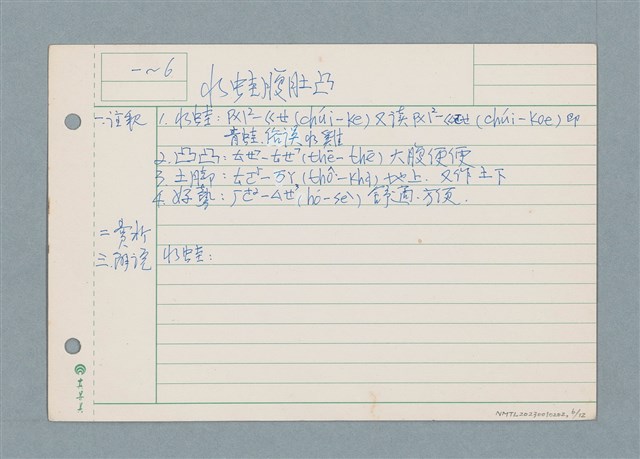 一~6
水蛙腹肚凸
一.註釈 1. 水蛙:ㄗㄨㄧˊ-ㄍㄝ (chúi-ke) 又读 ㄗㄨㄧˊ-ㄍㄨㄝ (chúi-koe) 即
青蛙.俗误水雞
2. 凸凸:ㄊㄝ-ㄊㄝ (thē-thē) 大腹便便
3. 土脚:ㄊㄛˊ-ㄎㄚ (thô-kha) 地上. 又作土下
4. 好勢:ㄏㄜˋ-ㄙㄝˋ (hó-sè) 舒適.方便.
二.賞析
三.閑詫 水蛙:
NMTL20230010202, 6/12